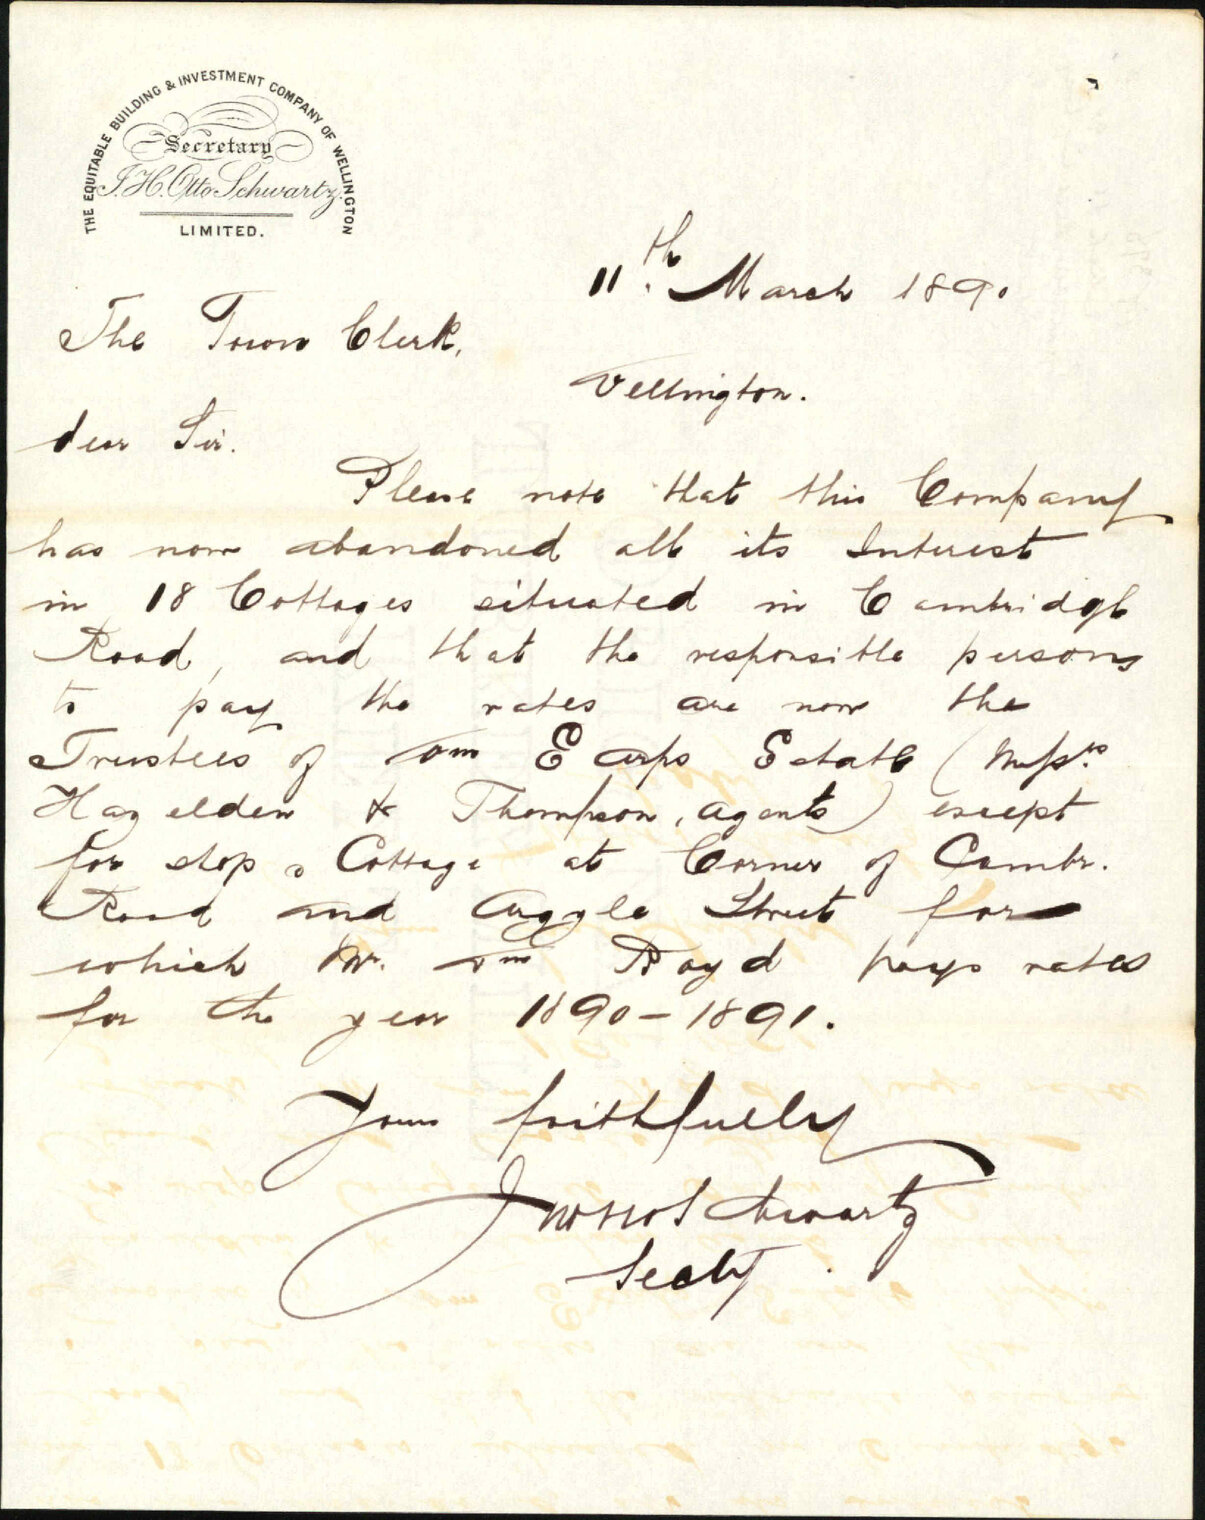 THE EQUITABLE BUILDING & INVESTMENT COMPANY OF WELLINGTON
Secretary
J. H. Otto Schwartz.
LIMITED.
11th. March 1890
The Town Clerk,
Wellington.
dear Sir.
Please note that this Company
has now abandoned all its Interest
in 18 Cottages situated in Cambridge
Road, and that the responsible persons
to pay the rates are now the
Trustees of Wm Earps Estate (Messrs
Hayelden & Thompson, agents) except
for shop & Cottage at Corner of Cambr.
Road and Argyle Street for
which Mr. Wm Boyd pays rates
for the year 1890-1891.
Yours faithfully
Schwartz
Secty